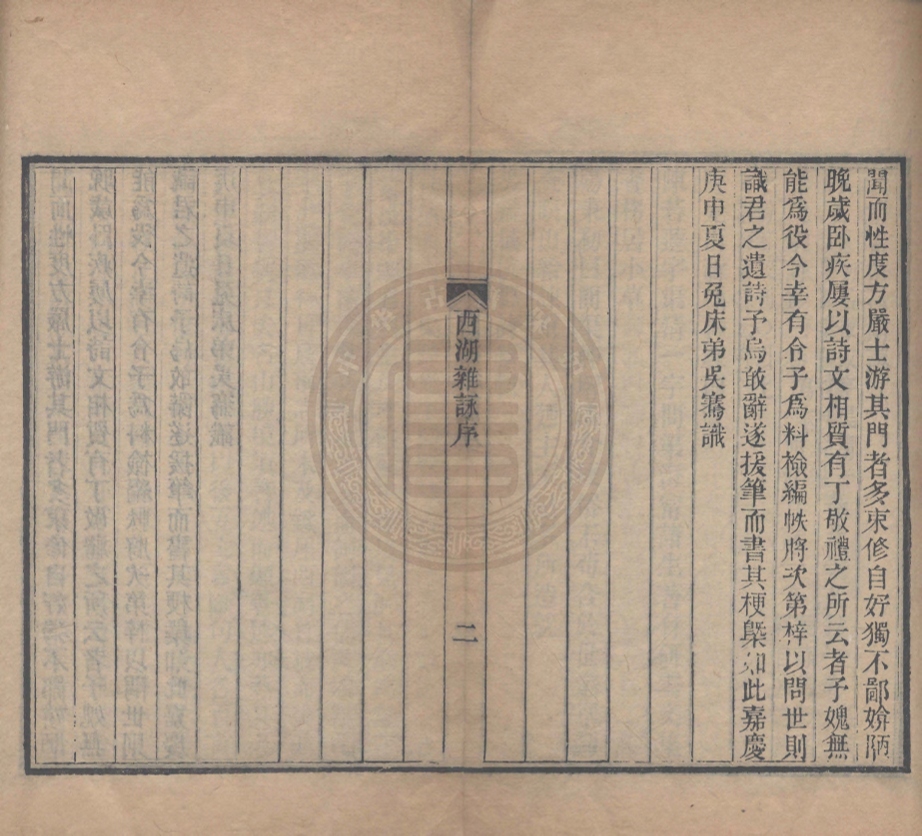 聞而性度方嚴士游其門者多束修自好獨不鄙媕陋
晚歲卧疾屢以詩文相質有丁敬禮之所云者予媿無
能爲役今幸有令子爲料檢編帙將次第梓以問世則
識君之遺詩予烏敢辭遂援筆而書其梗槩如此嘉慶
庚申夏日兔床弟吳騫識
西湖雜詠序
二